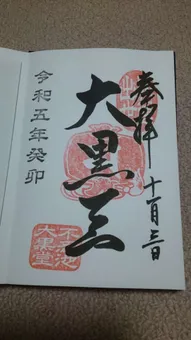 奉拝
十一月三日
大黒天
令和五年癸卯
不忍池
大黒堂